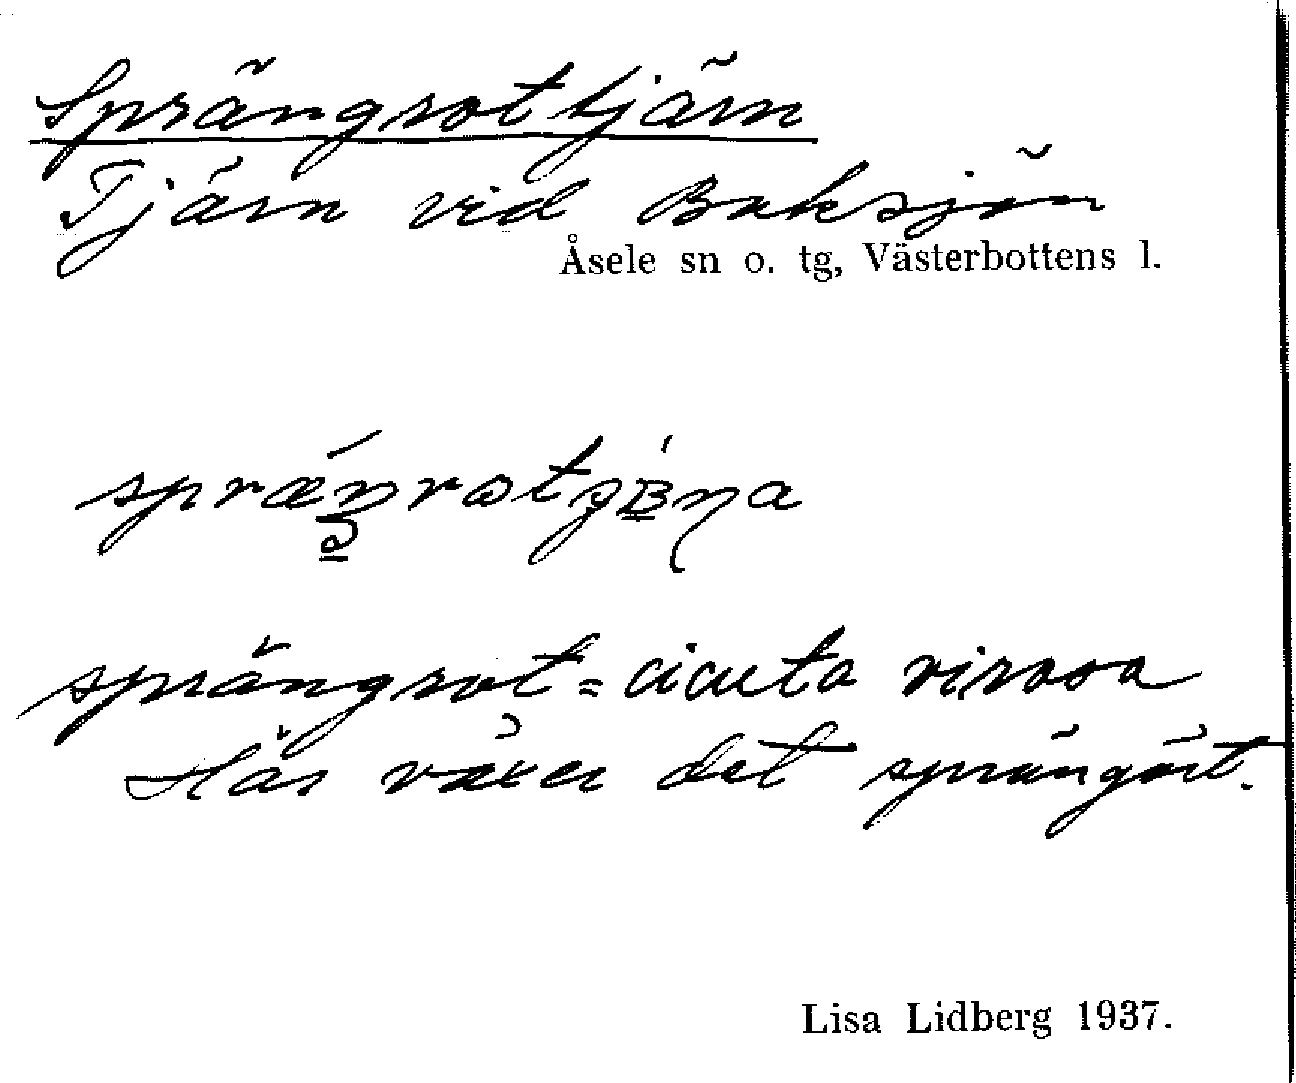 Sprängrottjärn
Tjärn vid Baksjön
Åsele sn o. tg, Västerbottens l.
sprängrot = cicuta virosa
Här växer det sprängört.
Lisa Lidberg 1937.